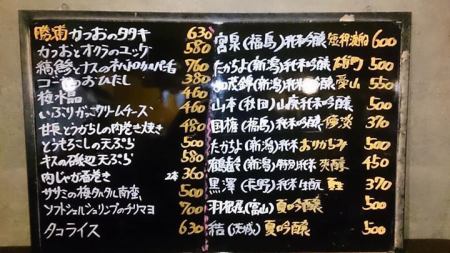 勝浦 かつおのタタキ 630
かつおとオクラのユッケ 580
縞鯵とナスの 760
ゴーヤのおひたし 380
梅水晶 460
いぶりがっこクリームチーズ 460
甘長とうがらしの肉巻き焼き 480
とうもろこしの天ぷら 500
キスの磯辺天ぷら 580
肉じゃが春巻き 2本 360
ササミの梅タルタル南蛮 500
ソフトシェルシュリンプのチリマヨ 700
タコライス 630
(福島)純米吟醸 600
たかちよ(新潟)純米吟醸 雄町 500
加茂錦(新潟)純米吟醸 愛山 550
山本(秋田)山廃純米吟醸 500
国権(福島)純米吟醸 370
たかちよ(新潟)純米吟醸 おりがらみ 500
鶴齢(新潟)特別純米 爽醇 450
黒澤(長野)純米生酛 370
羽根屋(富山)夏吟醸 500
結(茨城)夏吟醸 500